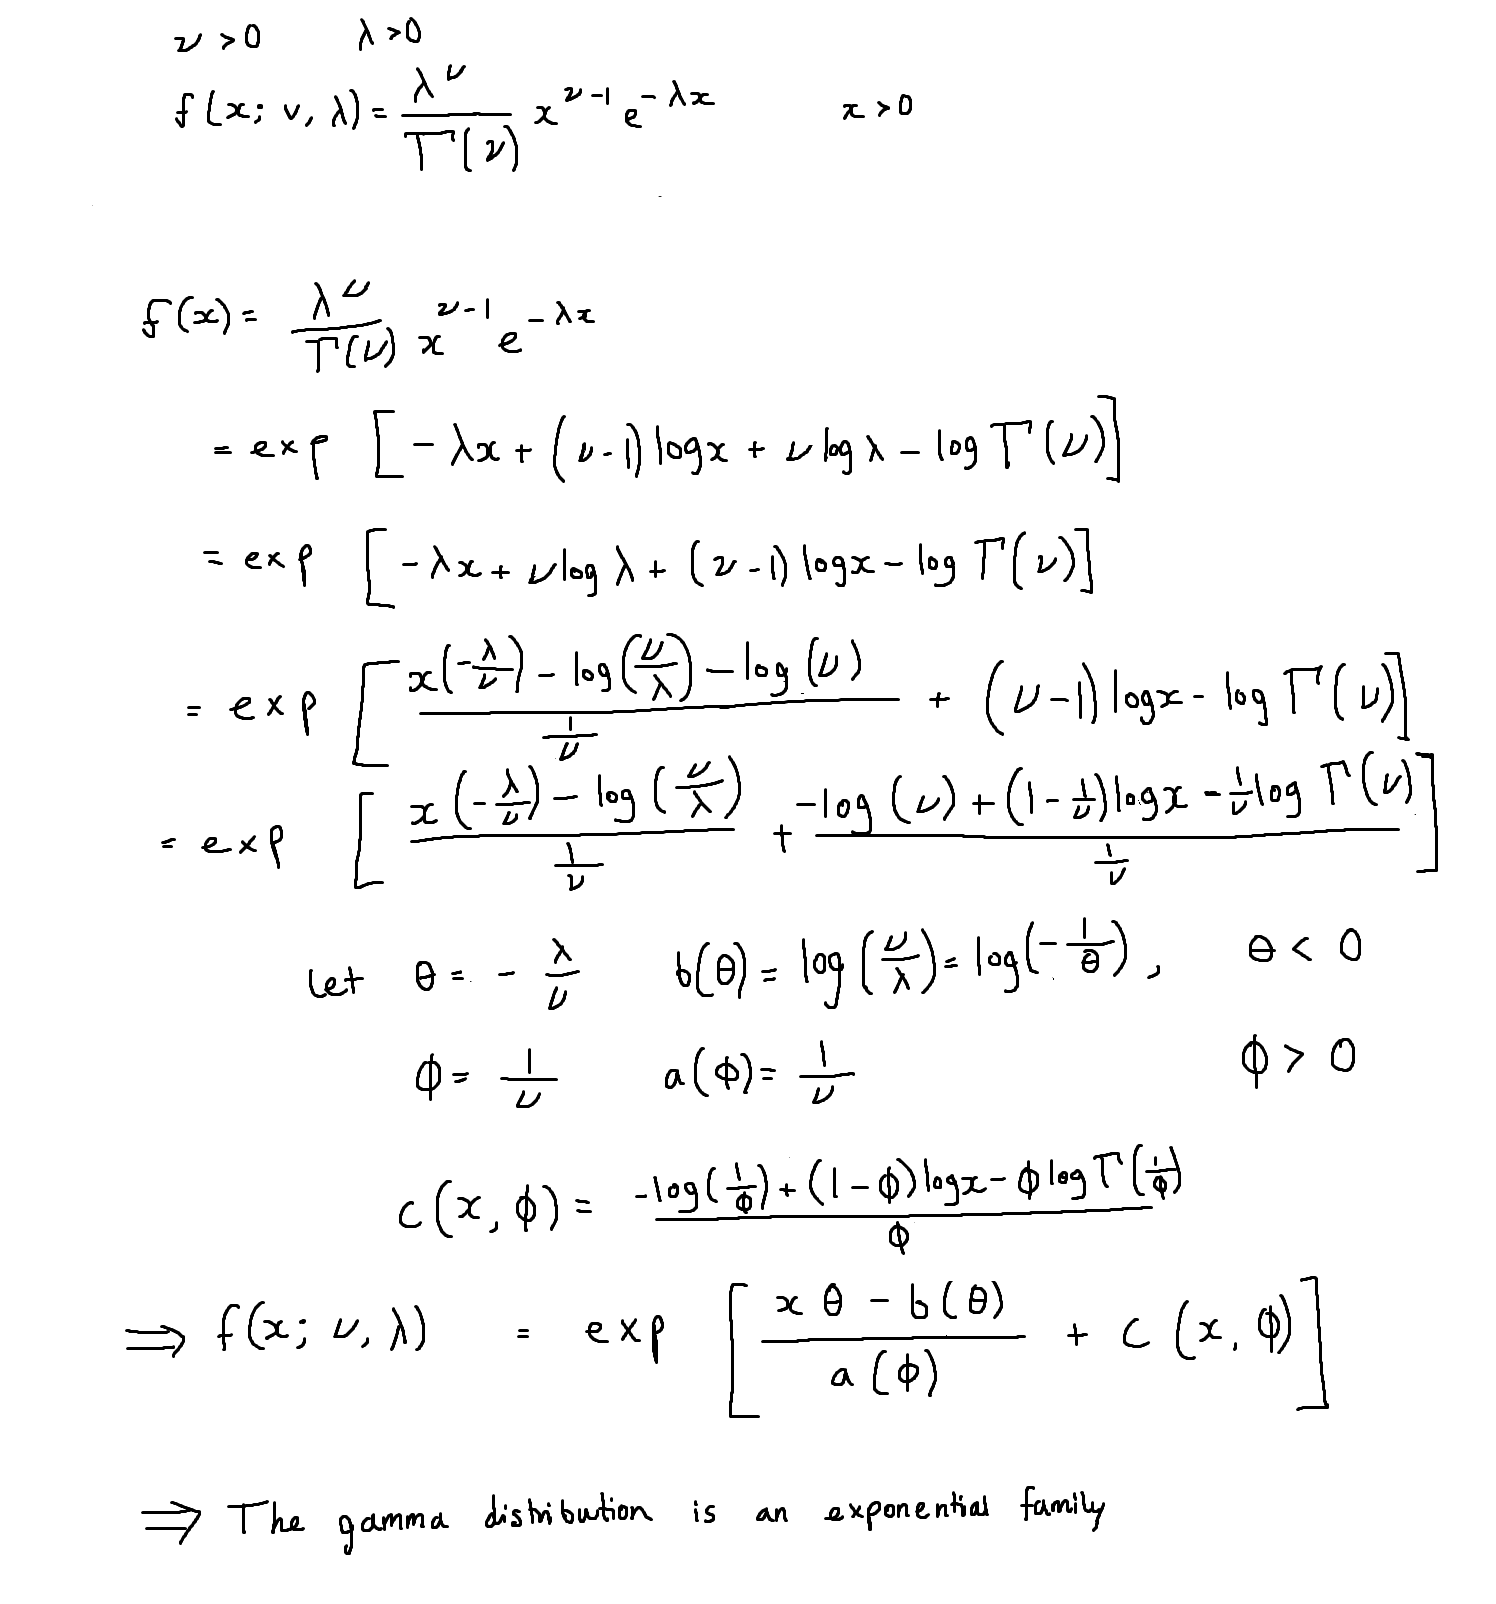 ν > 0    λ > 0
f(x; v, λ) = λ^ν / Γ(ν) x^(ν-1) e^(-λx)    x > 0
f(x) = λ^ν / Γ(ν) x^(ν-1) e^(-λx)
= exp [-λx + (ν-1) log x + ν log λ - log Γ(ν)]
= exp [-λx + ν log λ + (ν-1) log x - log Γ(ν)]
= exp [(x(-λ/ν) - log(ν/λ) - log(ν)) / (1/ν) + (ν-1) log x - log Γ(ν)]
= exp [(x(-λ/ν) - log(ν/λ)) / (1/ν) + (-log(ν) + (1-1/ν) log x - 1/ν log Γ(ν)) / (1/ν)]
Let θ = -λ/ν    b(θ) = log(ν/λ) = log(-1/θ),    θ < 0
ϕ = 1/ν    a(ϕ) = 1/ν    ϕ > 0
c(x, ϕ) = (-log(1/ϕ) + (1-ϕ) log x - ϕ log Γ(1/ϕ)) / ϕ
⇒ f(x; ν, λ) = exp [(xθ - b(θ)) / a(ϕ) + c(x, ϕ)]
⇒ The gamma distribution is an exponential family